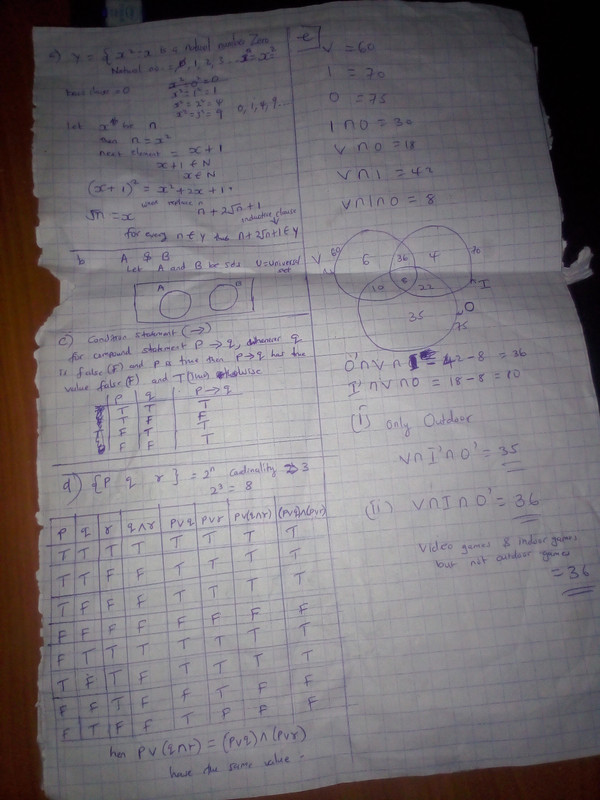 a) Y = { x²: x is natural number Zero
Natural nos. = 0, 1, 2, 3 ... x² = x²
basis clause = 0
x² = 0² = 0
x² = 1² = 1
x² = 2² = 4
x² = 3² = 9 0, 1, 4, 9, ...
Let x² be n
then n = x²
next element = x + 1
x + 1 ∈ N
x ∈ N
(x + 1)² = x² + 2x + 1
when replace n
√n = x n + 2√n + 1
inductive clause
for every n ∈ Y thus n + 2√n + 1 ∈ Y
b A & B
Let A and B be sets U = Universal set
A B
c) Condition statement (→)
for compound statement P → q, whenever q
is false (F) and P is true then P → q has the
value false (F) and T (true) otherwise
P q P → q
T T T
T F F
F T T
F F T
d) {P q r} = 2ⁿ Cardinality 3
2³ = 8
P q r q∧r P∨q P∨r P∨(q∧r) (P∨q)∧(P∨r)
T T T T T T T T
T T F F T T T T
T F F F T T T T
F F F F F F F F
F T T T T T T T
T F T F T T T T
F F T F F T F F
F T F F T F F F
hen P∨(q∧r) = (P∨q)∧(P∨r)
have the same value.
e
V = 60
I = 70
O = 75
I∩O = 30
V∩O = 18
V∩I = 42
V∩I∩O = 8
V 60 6 36 4 70 I
10 8 22
35 O 75
O'∩V∩I = 42 - 8 = 36
I'∩V∩O = 18 - 8 = 10
(i) only Outdoor
V∩I'∩O' = 35
(ii) V∩I∩O' = 36
Video games & indoor games
but not outdoor games
= 36